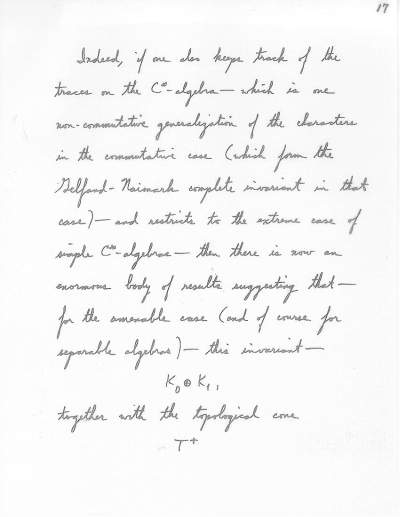 17
Indeed, if one also keeps track of the
traces on the C*-algebra — which is one
non-commutative generalization of the characters
in the commutative case (which form the
Gelfand-Naimark complete invariant in that
case) — and restricts to the extreme case of
simple C*-algebras — then there is now an
enormous body of results suggesting that —
for the amenable case (and of course for
separable algebras) — this invariant —
K₀ ⊕ K₁,
together with the topological cone
T⁺